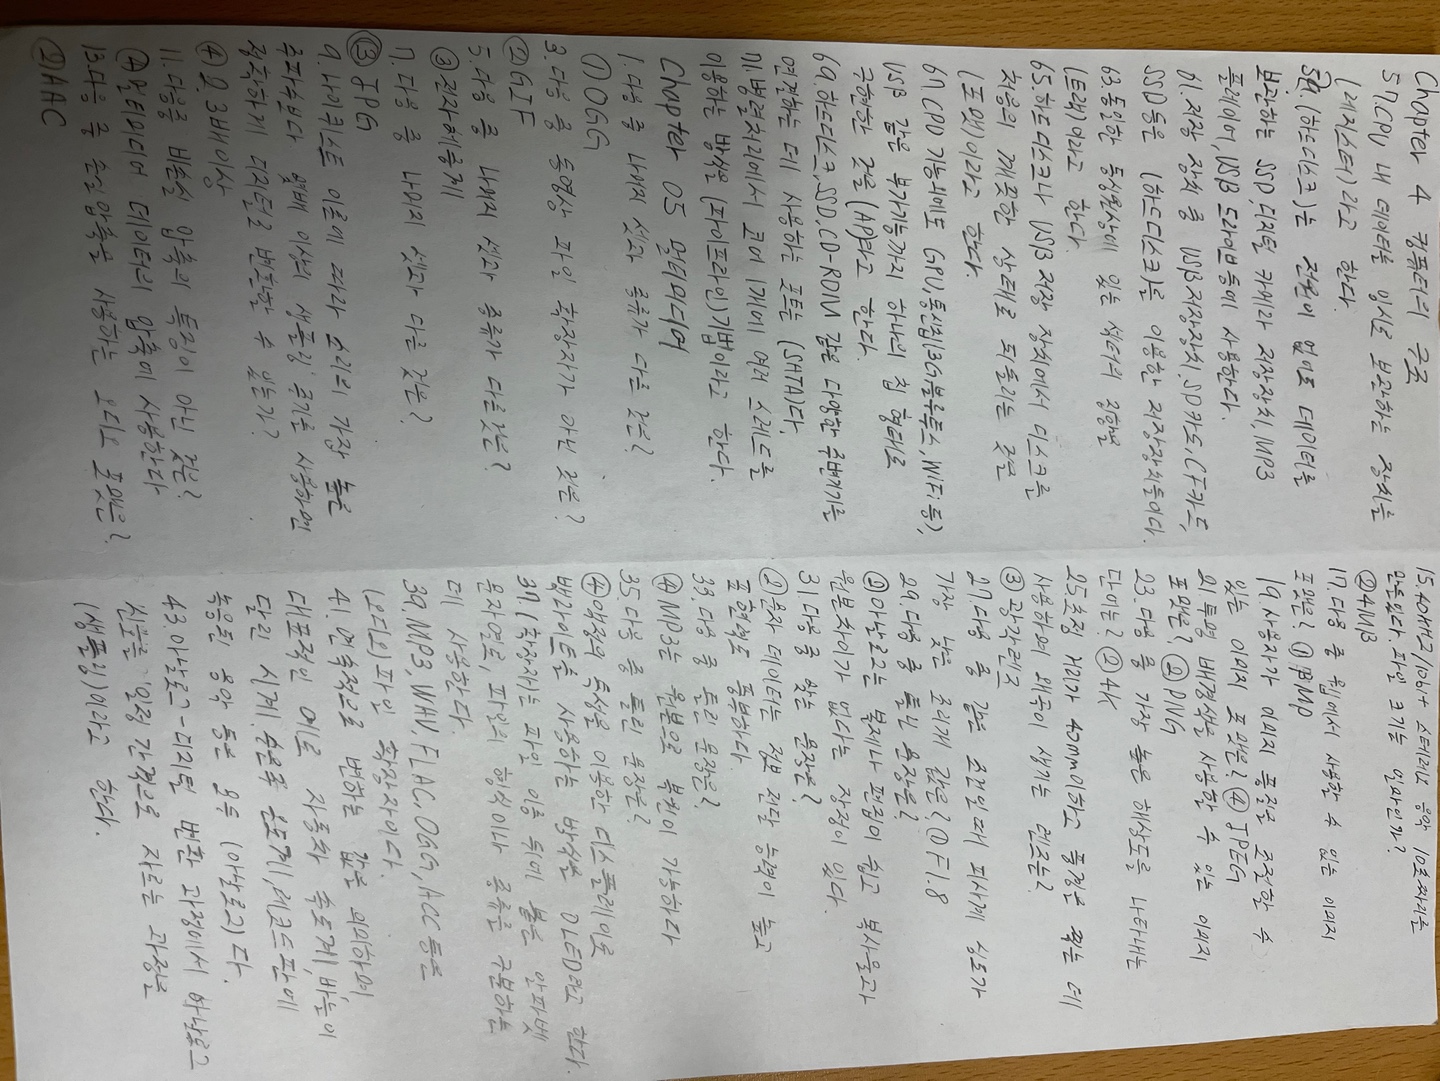 Chapter 4 컴퓨터의 구조
57.CPU 내 데이터를 임시로 보관하는 장치를
(레지스터)라고 한다.
59.(하드디스크)는 전원이 없어도 데이터를
보관하는 SSD,디지털 카메라 저장장치,MP3
플레이어,USB 드라이브 등에 사용한다.
61.저장 장치 중 USB저장장치.SD카드,CF카드,
SSD등은 (하드디스크)를 이용한 저장장치들이다.
63.동일한 동심원상에 있는 섹터의 집합을
(트랙)이라고 한다.
65.하드디스크나 USB저장 장치에서 디스크를
처음의 깨끗한 상태로 되돌리는 것을
(포맷)이라고 한다.
67.CPU 기능외에도 GPU,통신칩(3G,블루투스,WiFi등),
USB 같은 부가기능까지 하나의 칩 형태로
구현한 것을(AP)라고 한다.
69.하드디스크,SSD,CD-ROM 같은 다양한 주변기기를
연결하는 데 사용하는 포트는 (SHTA)다.
71.병렬처리에서 코어 1개에 여러 스레드를
이용하는 방식을 (파이프라인)기법이라고 한다.
Chapter 05 멀티미디어
1.다음 중 나머지 셋과 종류가 다른 것은?
①OGG
3.다음 중 동영상 파일 확장자가 아닌 것은?
②GIF
5.다음 중 나머지 셋과 종류가 다른것은?
③전자혜중계
7.다음 중 나머지 셋과 다른 것은?
③JPG
9.나이퀴스트 이론에 따라 소리의 가장 높은
주파수보다 몇배 이상의 샘플링 주기를 사용하면
정확하게 디지털로 변환할 수 있는가?
④2.3배이상
11.다음중 비손실 압축의 특징이 아닌 것은?
④멀티미디어 데이터의 압축에 사용한다
13.다음 중 손실압축을 사용하는 오디오 포맷은?
②AAC
15.40kHz/10bit 스테레오 음악 10초짜리를
만들었다.파일 크기는 얼마인가?
②4MB
17.다음 중 웹에서 사용할 수 없는 이미지
포맷은? ①BMP
19.사용자가 이미지 품질을 조절할 수
있는 이미지 포맷은? ④JPEG
21.투명 배경색을 사용할 수 있는 이미지
포맷은? ②PNG
23.다음 중 가장 높은 해상도를 나타내는
단어는? ②4K
25.초점 거리가 40mm이하고 풍경을 찍는 데
사용하며 왜곡이 생기는 렌즈는?
③광각렌즈
27.다음 중 같은 조건일때 피사계 심도가
가장 낮은 조리개 값은?①F1.8
29.다음 중 틀린 문장은?
②아날로그는 복제나 편집이 쉽고 복사물과
원본차이가 없다는 장점이 있다.
31.다음 중 맞는 문장은?
②문자 데이터는 정보 전달 능력이 높고
표현력도 풍부하다.
33.다음 중 틀린 문장은?
④MP3는 원본으로 복원이 가능하다
35.다음 중 틀린 문장은?
④액정의 특성을 이용한 디스플레이로
백라이트를 사용하는 방식을 OLED라고 한다.
37.(확장자)는 파일 이름 뒤에 붙은 알파벳
문자열로,파일의 형식이나 종류를 구분하는
데 사용한다.
39.MP3,WAV,FLAC,OGG,ACC등은
(오디오)파일 확장자이다.
41.연속적으로 변하는 값을 의미하며,
대표적인 예로 자동차 속도계,바늘이
달린 시계.수은주 온도계,레코드판에
녹음된 음악 등은 모두 (아날로그)다.
43.아날로그-디지털 변환 과정에서 아날로그
신호를 일정 간격으로 자르는 과정을
(샘플링)이라고 한다.